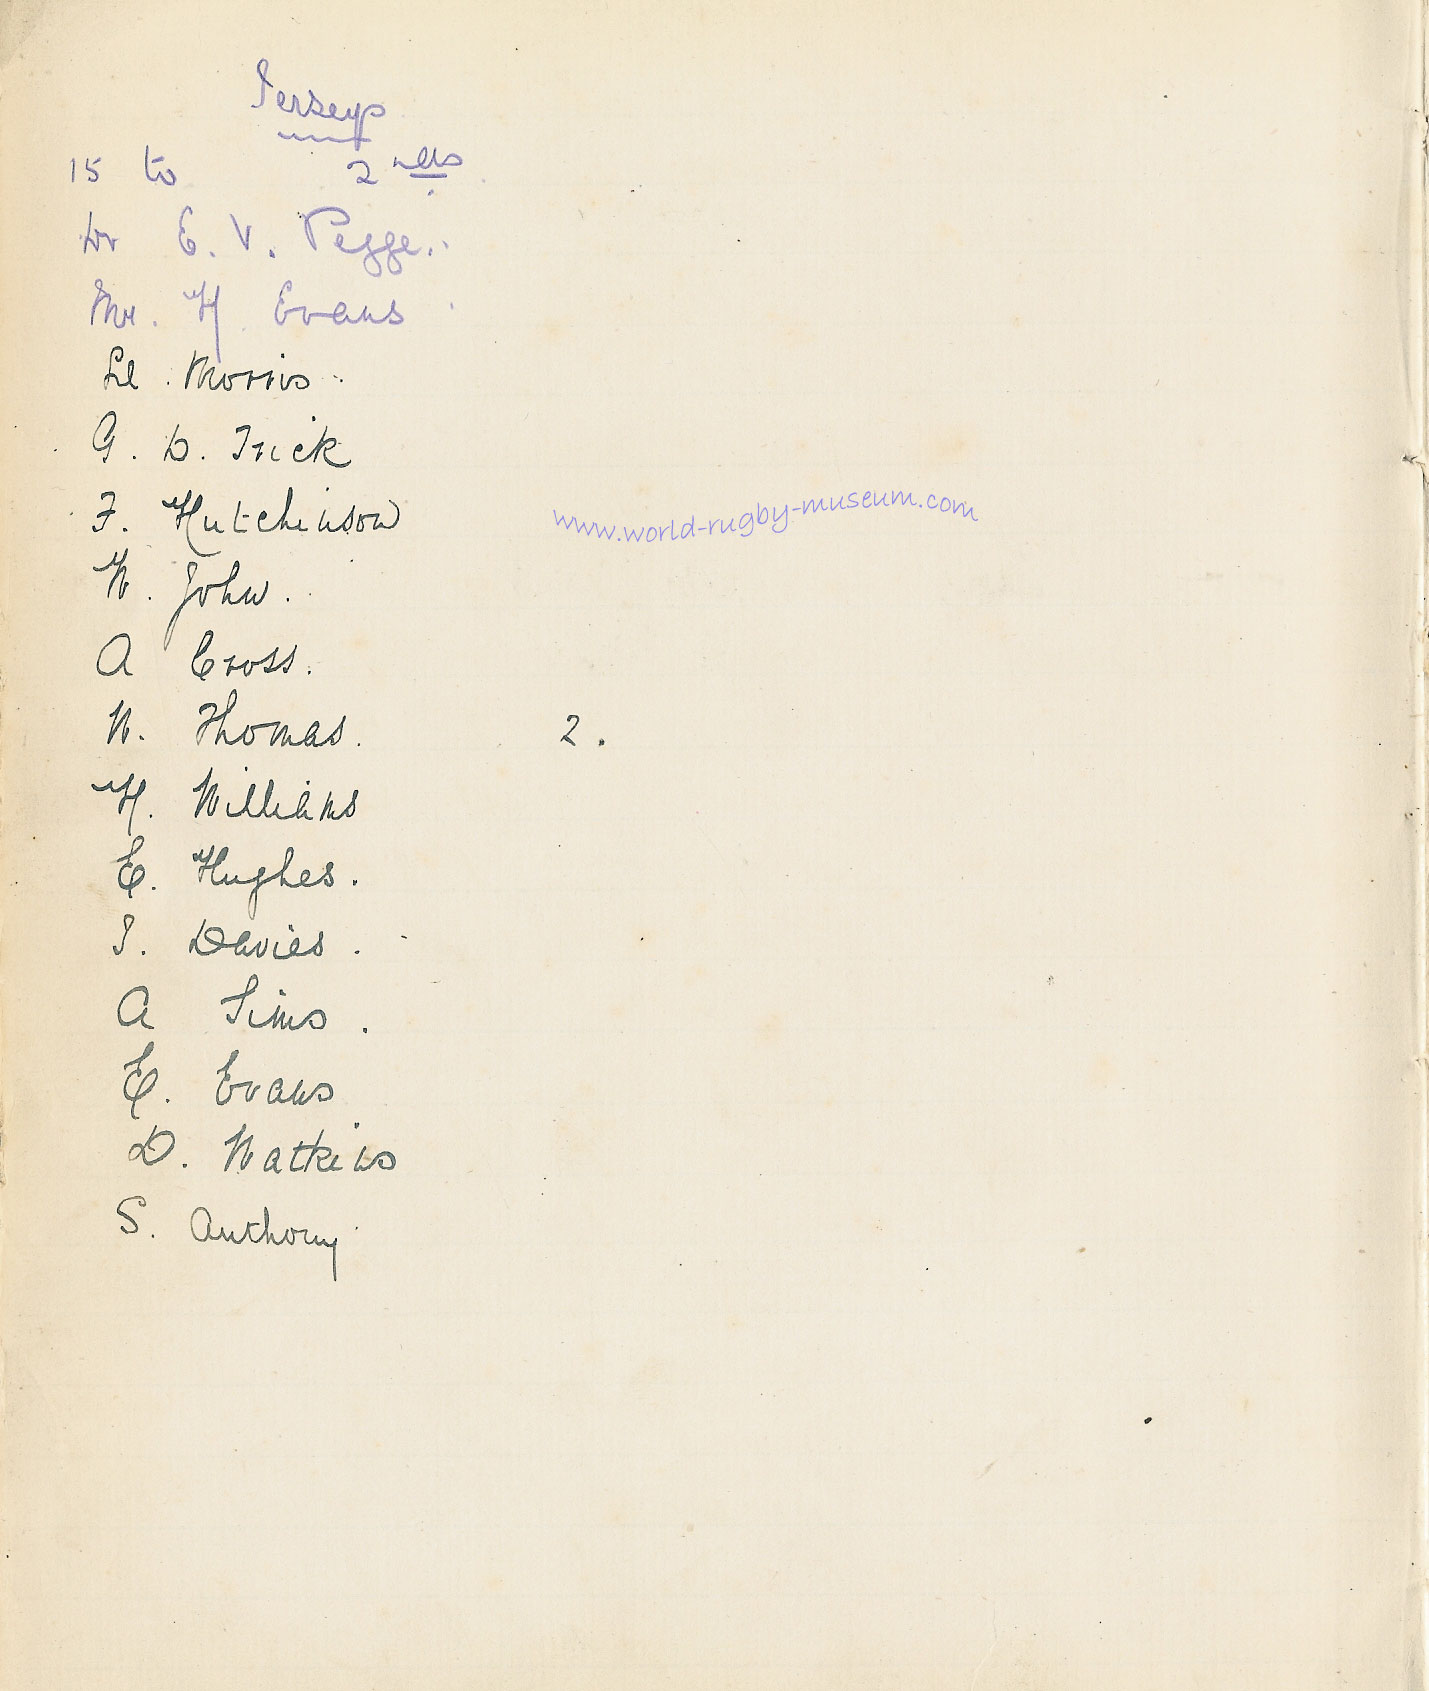 Jerseys
15 to 2nds
Dr E. V. Pegge.
Mr. H Evans
Ll. Morris
G. D. Trick
F. Hutchinson
W. John.
A Cross.
W. Thomas. 2.
H. Williams
E. Hughes.
I. Davies.
A Sims.
E. Evans
D. Watkins
S. Anthony
www.world-rugby-museum.com